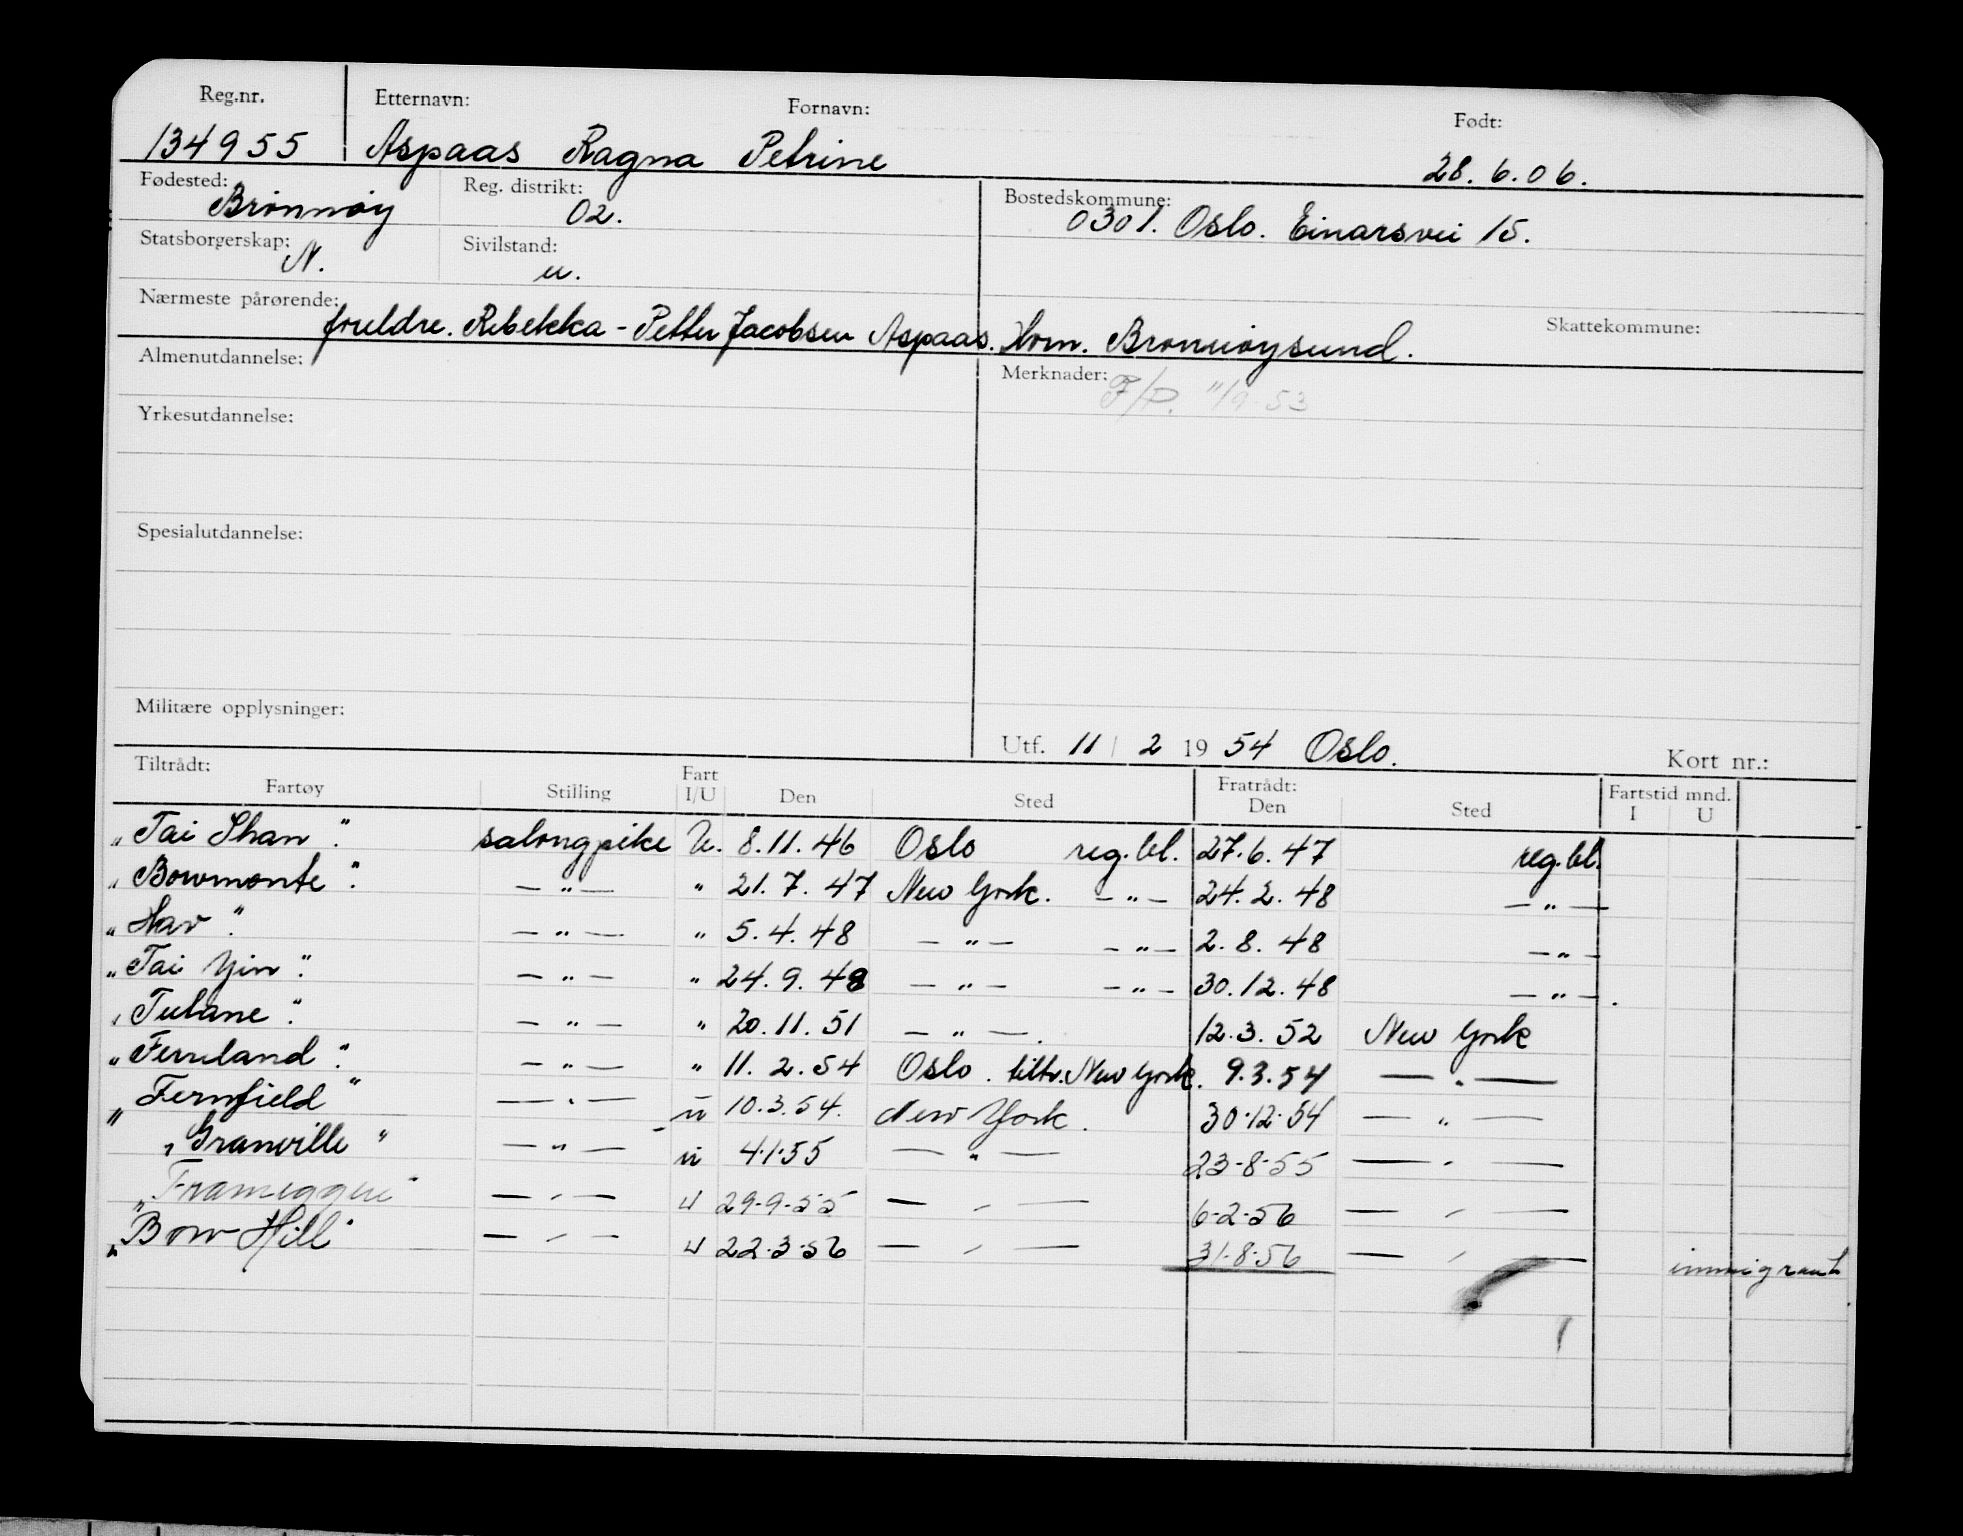 Reg.nr. Etternavn: Fornavn: Født:
134955 Aspaas Ragna Petrine 28.6.06.
Fødested: Brønnøy Reg. distrikt: 02. Bostedskommune: 0301. Oslo. Einarsvei 15.
Statsborgerskap: N. Sivilstand: u.
Nærmeste pårørende: foreldre. Rebekka - Petter Jacobsen Aspaas. Horn. Brønnøysund. Skattekommune:
Almenutdannelse: Merknader: F/P. "/9-53
Yrkesutdannelse:
Spesialutdannelse:
Militære opplysninger:
Utf. 11 / 2 19 54 Oslo. Kort nr.:
Tiltrådt: Fratrådt: Fartstid mnd.
Fartøy Stilling Fart I/U Den Sted Den Sted I U
„Tai Shan" salongpike U. 8.11.46 Oslo reg.bl. 27.6.47 reg.bl.
„Bowmonte" — " — " 21.7.47 New York. — " — 24.2.48 — " —
„Hav" — " — " 5.4.48 — " — — " — 2.8.48 — " —
„Tai Yin" — " — " 24.9.48 — " — — " — 30.12.48 — " — .
„Tulane" — " — " 20.11.51 — " — . 12.3.52 New York
„Fernland" — " — " 11.2.54 Oslo. tiltr. New York. 9.3.54 — " —
„Fernfield" — " — u 10.3.54. New York. 30.12.54 — " —
„Granville" — " — u 4.1.55 — " — 23-8-55 — " —
— " — u 29-9-55 — " — 6-2-56 — " —
„Bow Hill" — " — u 22.3.56 — " — 31.8.56 — " — immigrant